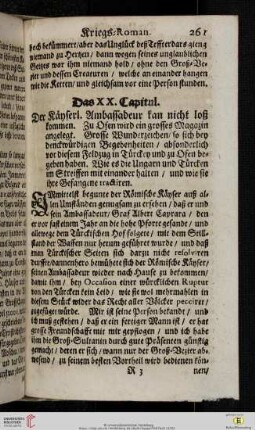 Kriegs-Roman. 261
hoch bekümmert/ aber das Unglück des Tefftterdars gieng
niemand zu Hertzen/ dann wegen seines unglaublichen
Geitzes war ihm niemand hold/ ohne den Groß-Ve-
zier und dessen Creaturen/ welche an einander hangen
wie die Ketten/ und gleichsam vor eine Person stunden.
Das XX. Capitul.
Der Käyserl. Ambassadeur kan nicht loß
kommen. Zu Ofen wird ein grosses Magazin
angelegt. Grosse Wunderzeichen/ so sich bey
denckwürdigen Begebenheiten/ absonderlich
vor diesem Feldzug in Türckey und zu Ofen be-
geben haben. Wie es die Ungarn und Türcken
in Streiffen mit einander halten/ und wie sie
ihre Gefangene tractiren.
Immittelst begunte der Römische Käyser auß al-
len Umständen gnugsam zu ersehen/ daß er und
sein Ambassadeur/ Graf Albert Caprara/ den
er vor fast einem Jahr an die hohe Pforte gesandt/ und
allerwege dem Türckischen Hof folgete/ mit dem Still-
stand der Waffen nur herum geführet wurde/ und daß
man Türckischer Seiten sich darzu nicht resolviren
durffte/ dannenhero bemühete sich der Römische Käyser/
seinen Ambassadeur wieder nach Hause zu bekommen/
damit ihm/ bey Occasion einer würcklichen Ruptur
von den Türcken kein Leid/ wie sie wol mehrmalen in
diesem Stück wider das Recht aller Völcker pecciret/
zugefüget würde. Mir ist seine Person bekandt/ und
ich muß gestehen/ daß er ein fertiger Mann ist/ er hat
grosse Freundschafft mit mir gepflogen/ und ich habe
ihm die Groß-Sultanin durch gute Präsenten günstig
gemacht/ deren er sich/ wann nur der Groß-Vezier ab-
wesend/ zu seinem besten Vortheil wird bedienen kön-
R 3 nen/